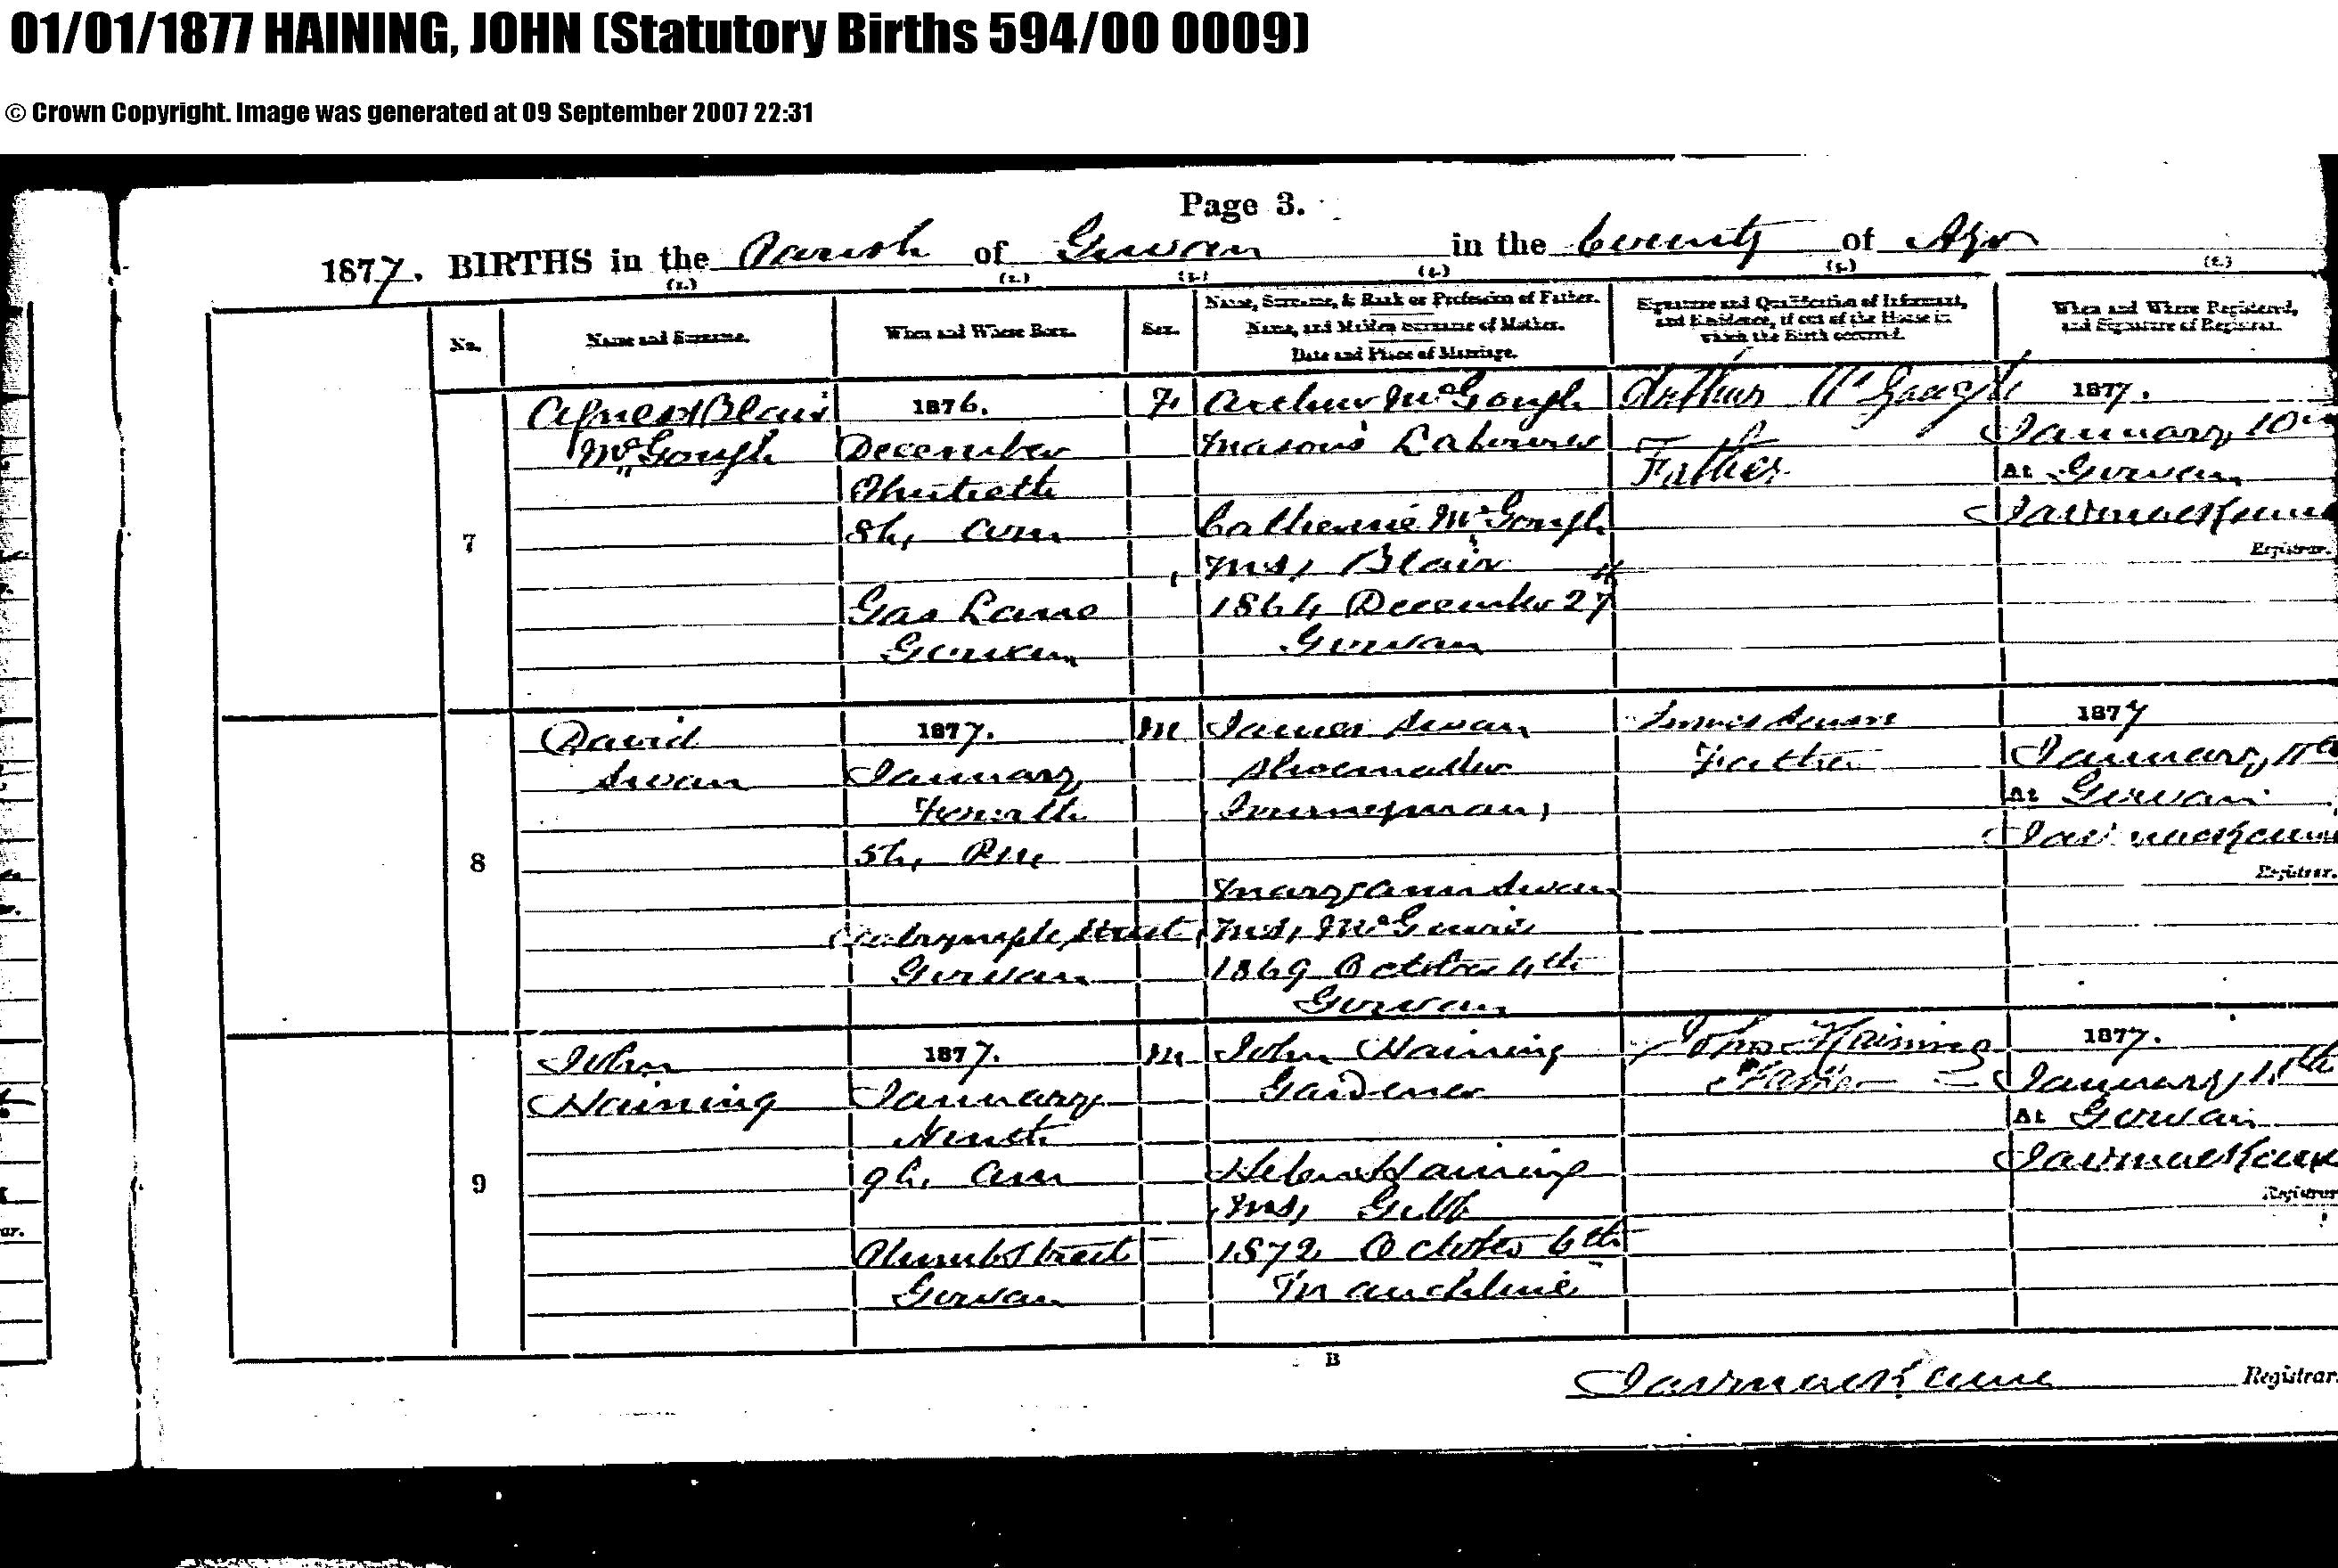 01/01/1877 HAINING, JOHN (Statutory Births 594/00 0009)
© Crown Copyright. Image was generated at 09 September 2007 22:31
Page 3.
1877. BIRTHS in the Parish of Girvan in the County of Ayr
(1.) (2.) (3.) (4.) (5.) (6.)
No.
Name and Surname.
When and Where Born.
Sex.
Name, Surname, & Rank or Profession of Father.
Name, and Maiden Surname of Mother.
Date and Place of Marriage.
Signature and Qualification of Informant,
and Residence, if out of the House in
which the Birth occurred.
When and Where Registered,
and Signature of Registrar.
7
Agnes Blair
McGough
1876.
December
Thirtieth
8h, am
Gas Lane
Girvan
F.
Arthur McGough
Masons Labourer
Catherine McGough
ms, Blair
1864 December 27
Girvan
Arthur McGough
Father
1877.
January 10th
At Girvan
Registrar.
8
David
Swan
1877.
January
Fourth
5h, Pm
Dalrymple Street
Girvan
M
James Swan
Shoemaker
Journeyman
Mary Ann Swan
ms,
1869 October 4th
Girvan
James Swan
Father
1877
January 11th
At Girvan
Registrar.
9
John
Haining
1877.
January
Ninth
9h, am
Girvan
M
John Haining
Gardener
Helen Haining
ms, Gibb
1872 October 6th
Mauchline
John Haining
Father
1877.
January 11th
At Girvan
Registrar
B
Registrar.